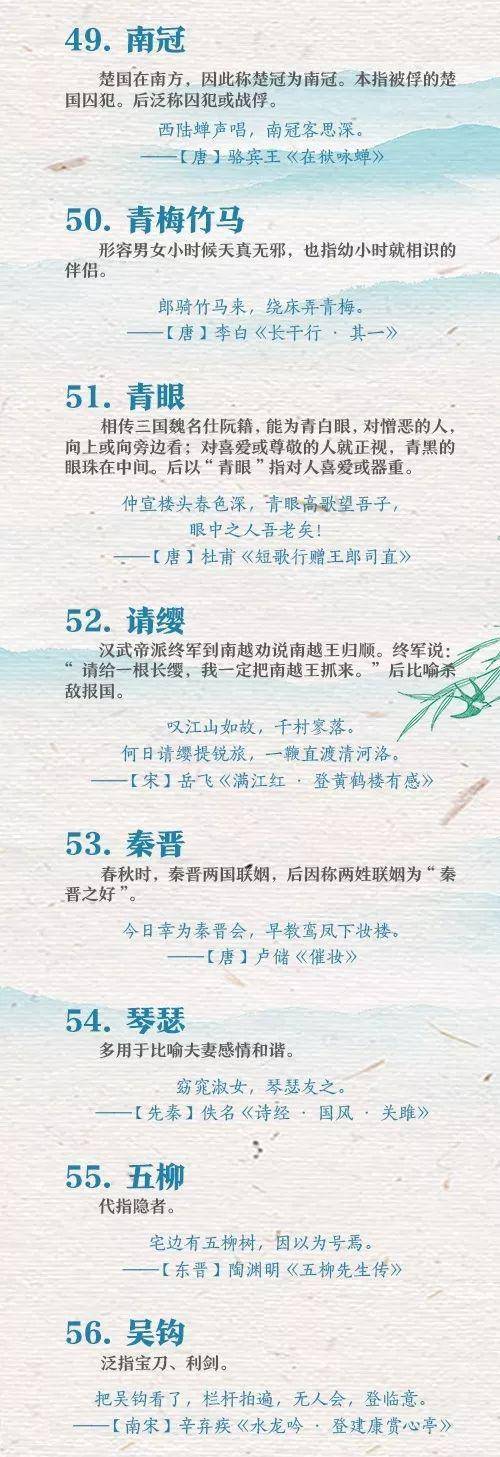 49. 南冠
楚国在南方，因此称楚冠为南冠。本指被俘的楚
国囚犯。后泛称囚犯或战俘。
西陆蝉声唱，南冠客思深。
——【唐】骆宾王《在狱咏蝉》
50. 青梅竹马
形容男女小时候天真无邪，也指幼小时就相识的
伴侣。
郎骑竹马来，绕床弄青梅。
——【唐】李白《长干行 · 其一》
51. 青眼
相传三国魏名仕阮籍，能为青白眼，对憎恶的人，
向上或向旁边看；对喜爱或尊敬的人就正视，青黑的
眼珠在中间。后以“青眼”指对人喜爱或器重。
仲宣楼头春色深，青眼高歌望吾子，
眼中之人吾老矣!
——【唐】杜甫《短歌行赠王郎司直》
52. 请缨
汉武帝派终军到南越劝说南越王归顺。终军说：
“请给一根长缨，我一定把南越王抓来。”后比喻杀
敌报国。
叹江山如故，千村寥落。
何日请缨提锐旅，一鞭直渡清河洛。
——【宋】岳飞《满江红 · 登黄鹤楼有感》
53. 秦晋
春秋时，秦晋两国联姻，后因称两姓联姻为“秦
晋之好”。
今日幸为秦晋会，早教鸾凤下妆楼。
——【唐】卢储《催妆》
54. 琴瑟
多用于比喻夫妻感情和谐。
窈窕淑女，琴瑟友之。
——【先秦】佚名《诗经 · 国风 · 关雎》
55. 五柳
代指隐者。
宅边有五柳树，因以为号焉。
——【东晋】陶渊明《五柳先生传》
56. 吴钩
泛指宝刀、利剑。
把吴钩看了，栏杆拍遍，无人会，登临意。
——【南宋】辛弃疾《水龙吟 · 登建康赏心亭》